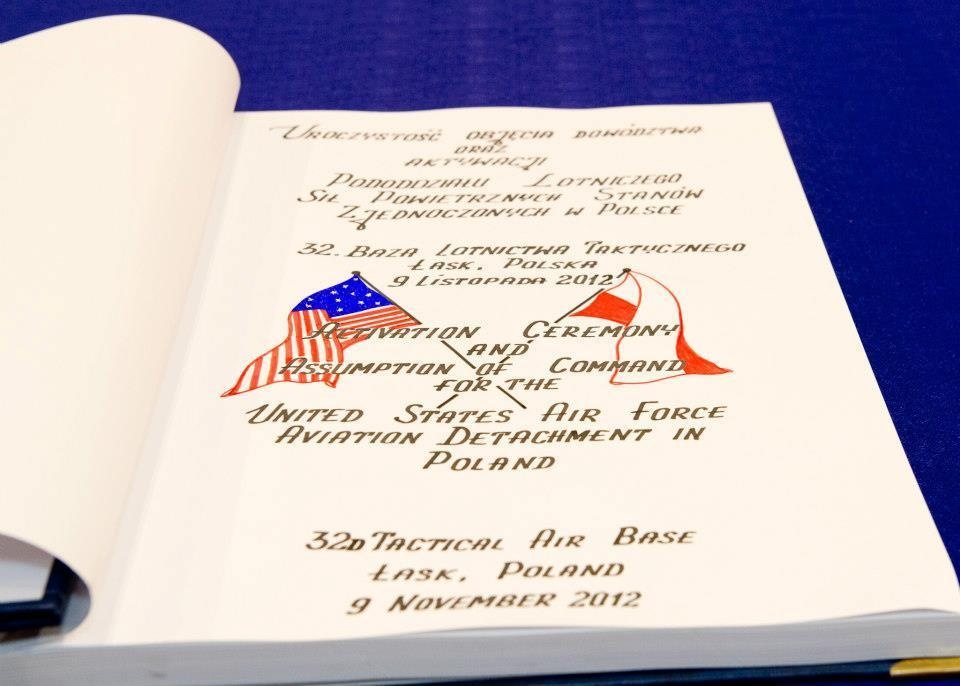 Uroczystość objęcia dowództwa
oraz
aktywacji
Pododziału Lotniczego
Sił Powietrznych Stanów
Zjednoczonych w Polsce
32. Baza Lotnictwa Taktycznego
Łask, Polska
9 Listopada 2012
Activation Ceremony
and
Assumption of Command
for the
United States Air Force
Aviation Detachment in
Poland
32d Tactical Air Base
Łask, Poland
9 November 2012